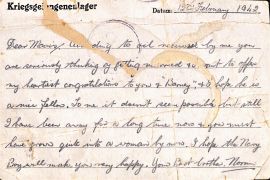 Kriegsgefangenenlager Datum: 15th February 1942.
Dear Mavis, to received by me you
are seriously thinking of getting married so, want to offer
my heartiest congratulations to you & "Barney", & I hope he is
a nice fellow. To me it doesn't seem possible but still
I have been away for a long time now & you must
have grown quite into a woman by now. I hope the Navy
Boy will make you very happy. Your Best brother Norm